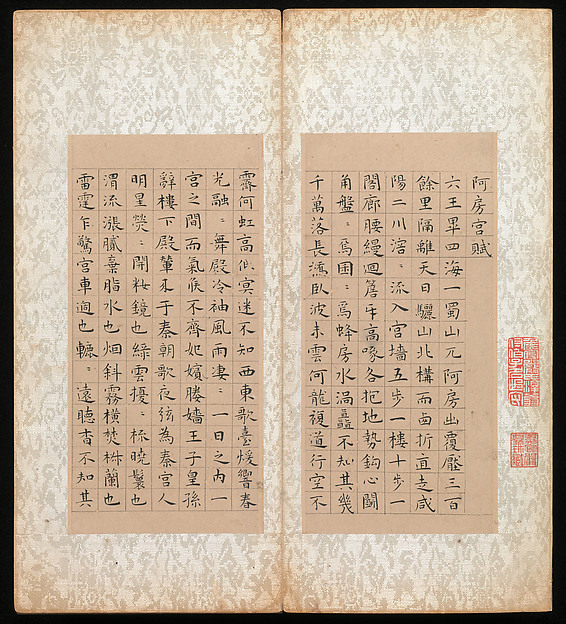 阿房宮賦
六王畢四海一蜀山兀阿房出覆壓三百
餘里隔離天日驪山北構而西折直走咸
陽二川溶：流入宮墻五步一樓十步一
閣廊腰縵迴簷牙高啄各抱地勢鈎心鬭
角盤：焉囷：焉蜂房水渦矗不知其幾
千萬落長橋臥波未雲何龍複道行空不
霽何虹高低冥迷不知西東歌臺煖響春
光融：舞殿冷袖風雨凄：一日之內一
宮之間而氣候不齊妃嬪媵嬙王子皇孫
辭樓下殿輦來于秦朝歌夜弦為秦宮人
明星熒：開粧鏡也綠雲擾：梳曉鬟也
渭流漲膩棄脂水也烟斜霧橫焚椒蘭也
雷霆乍驚宮車過也轆：遠聽杳不知其